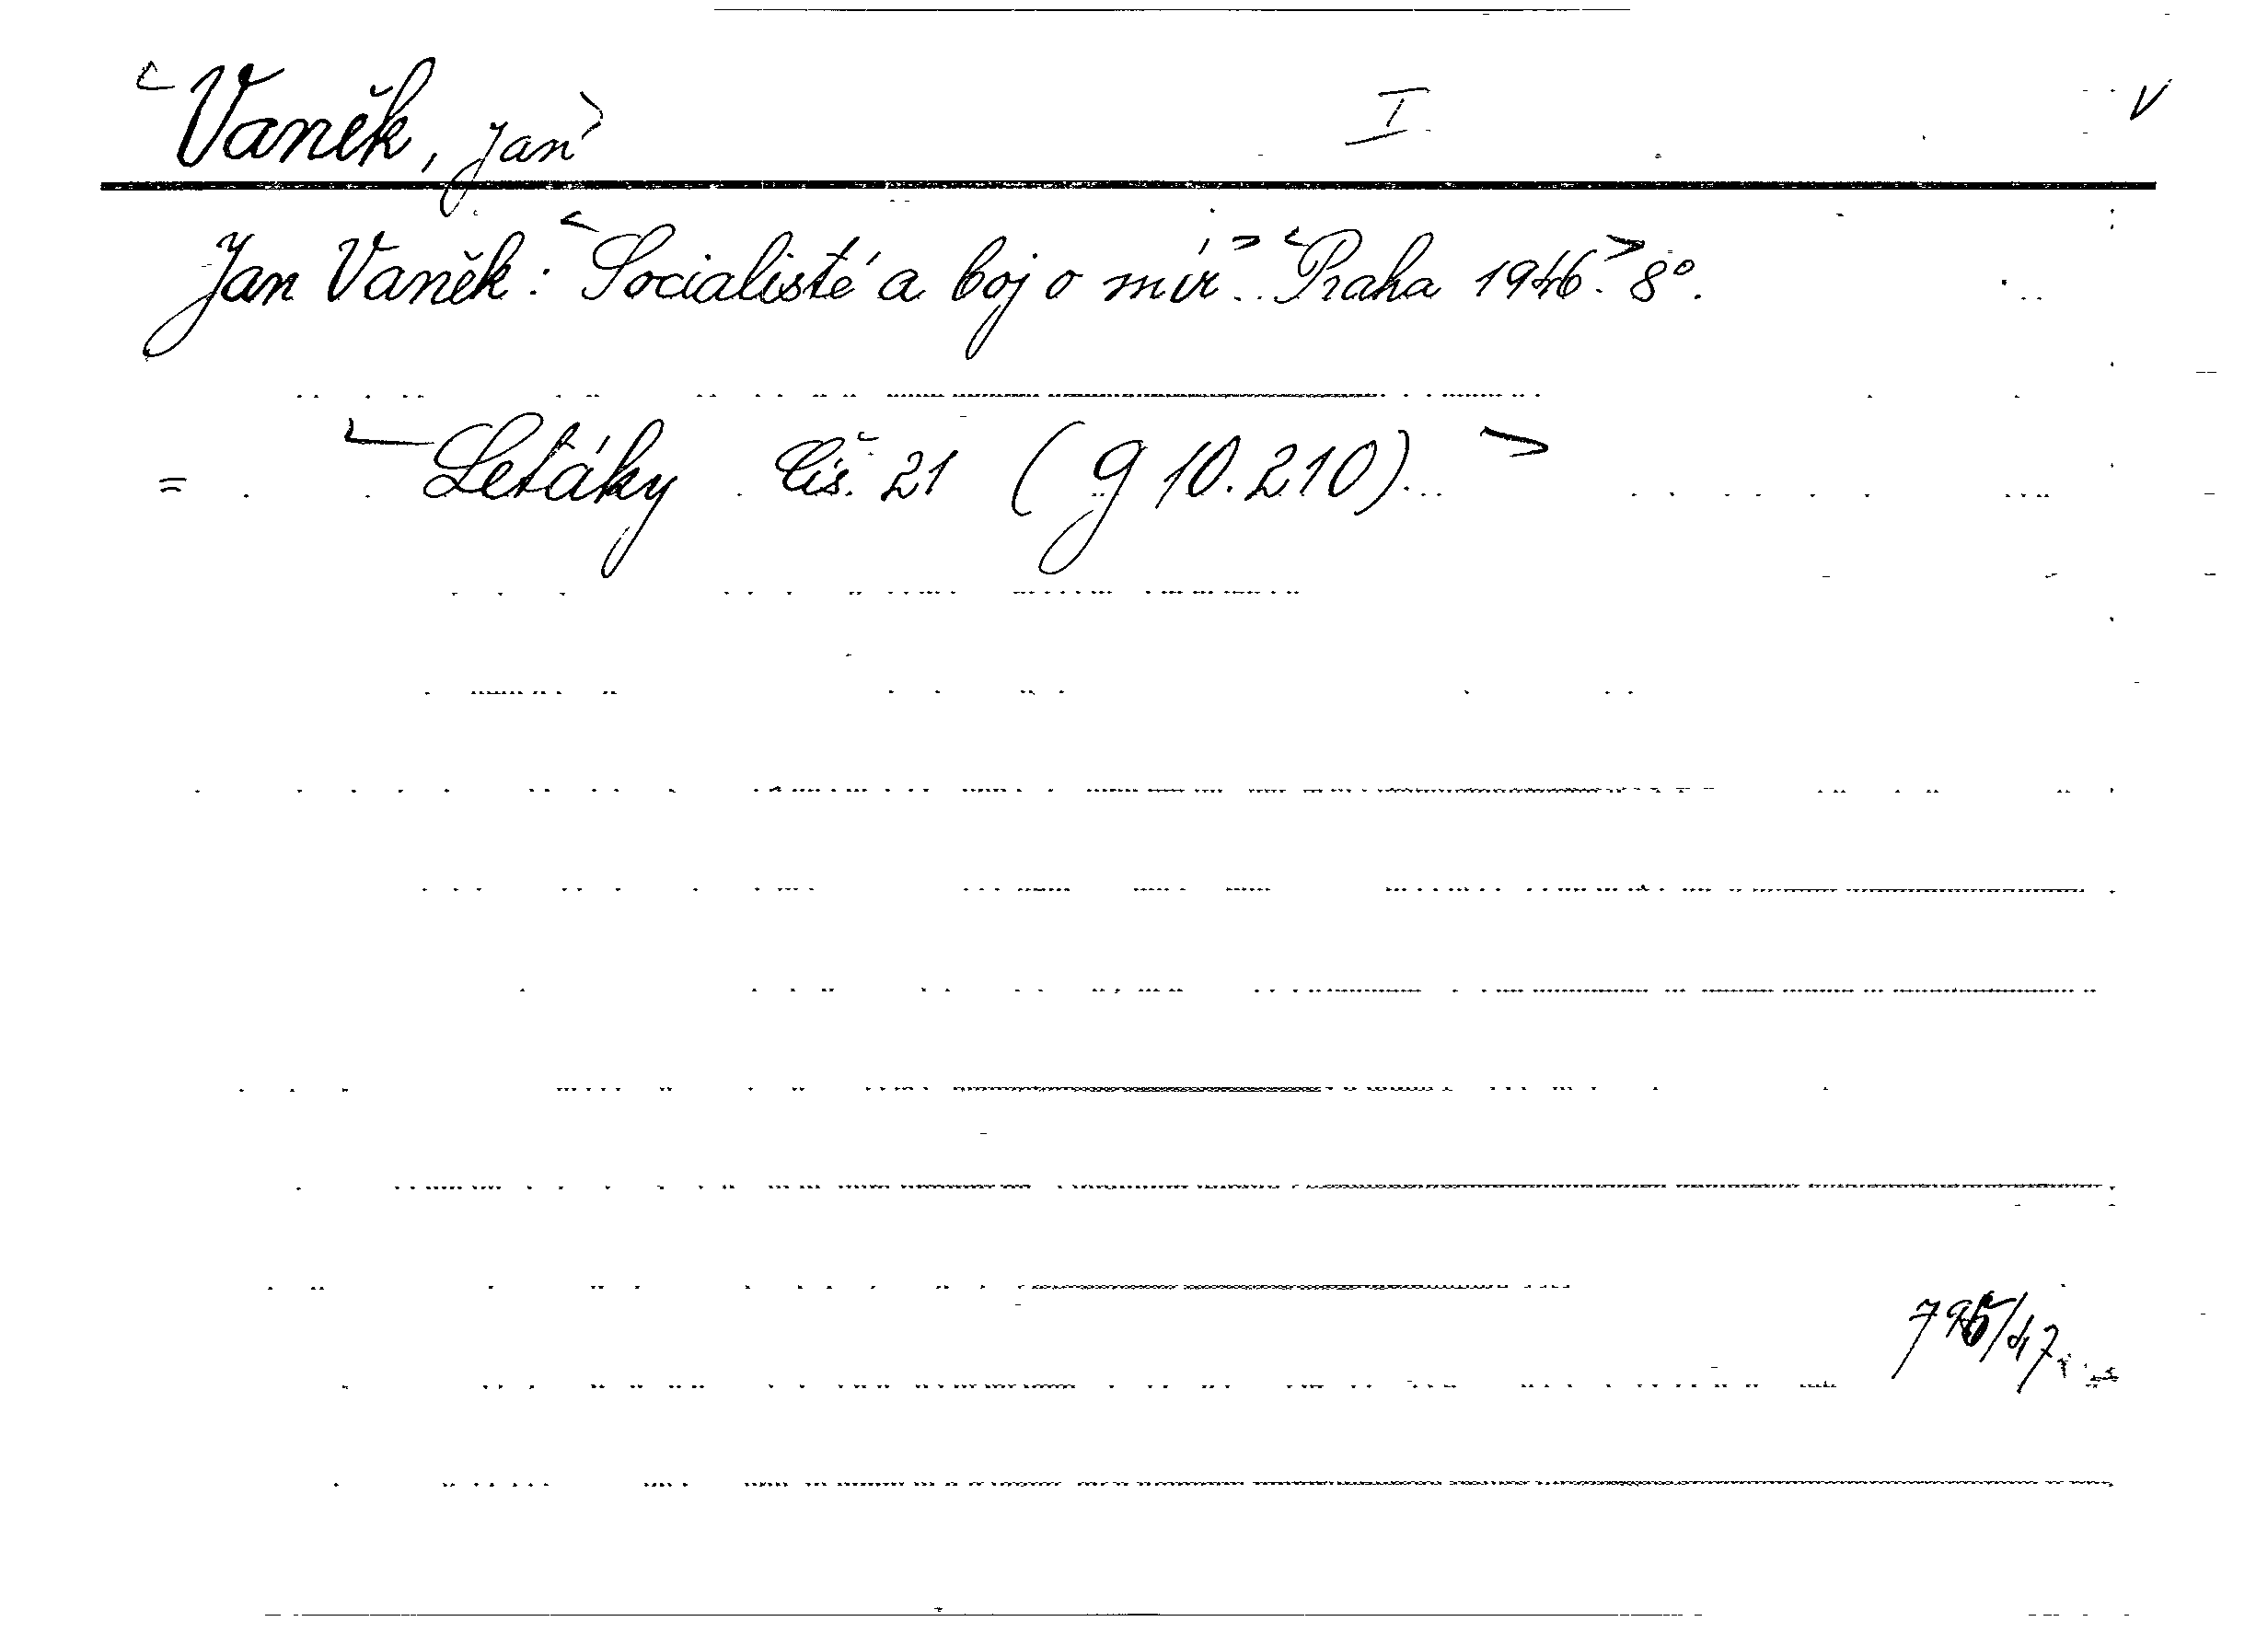 <Vaněk, Jan> I V
Jan Vaněk: <Socialisté a boj o mír.> <Praha 1946.> 8°.
= <Letáky čís. 21 (g 10.210).>